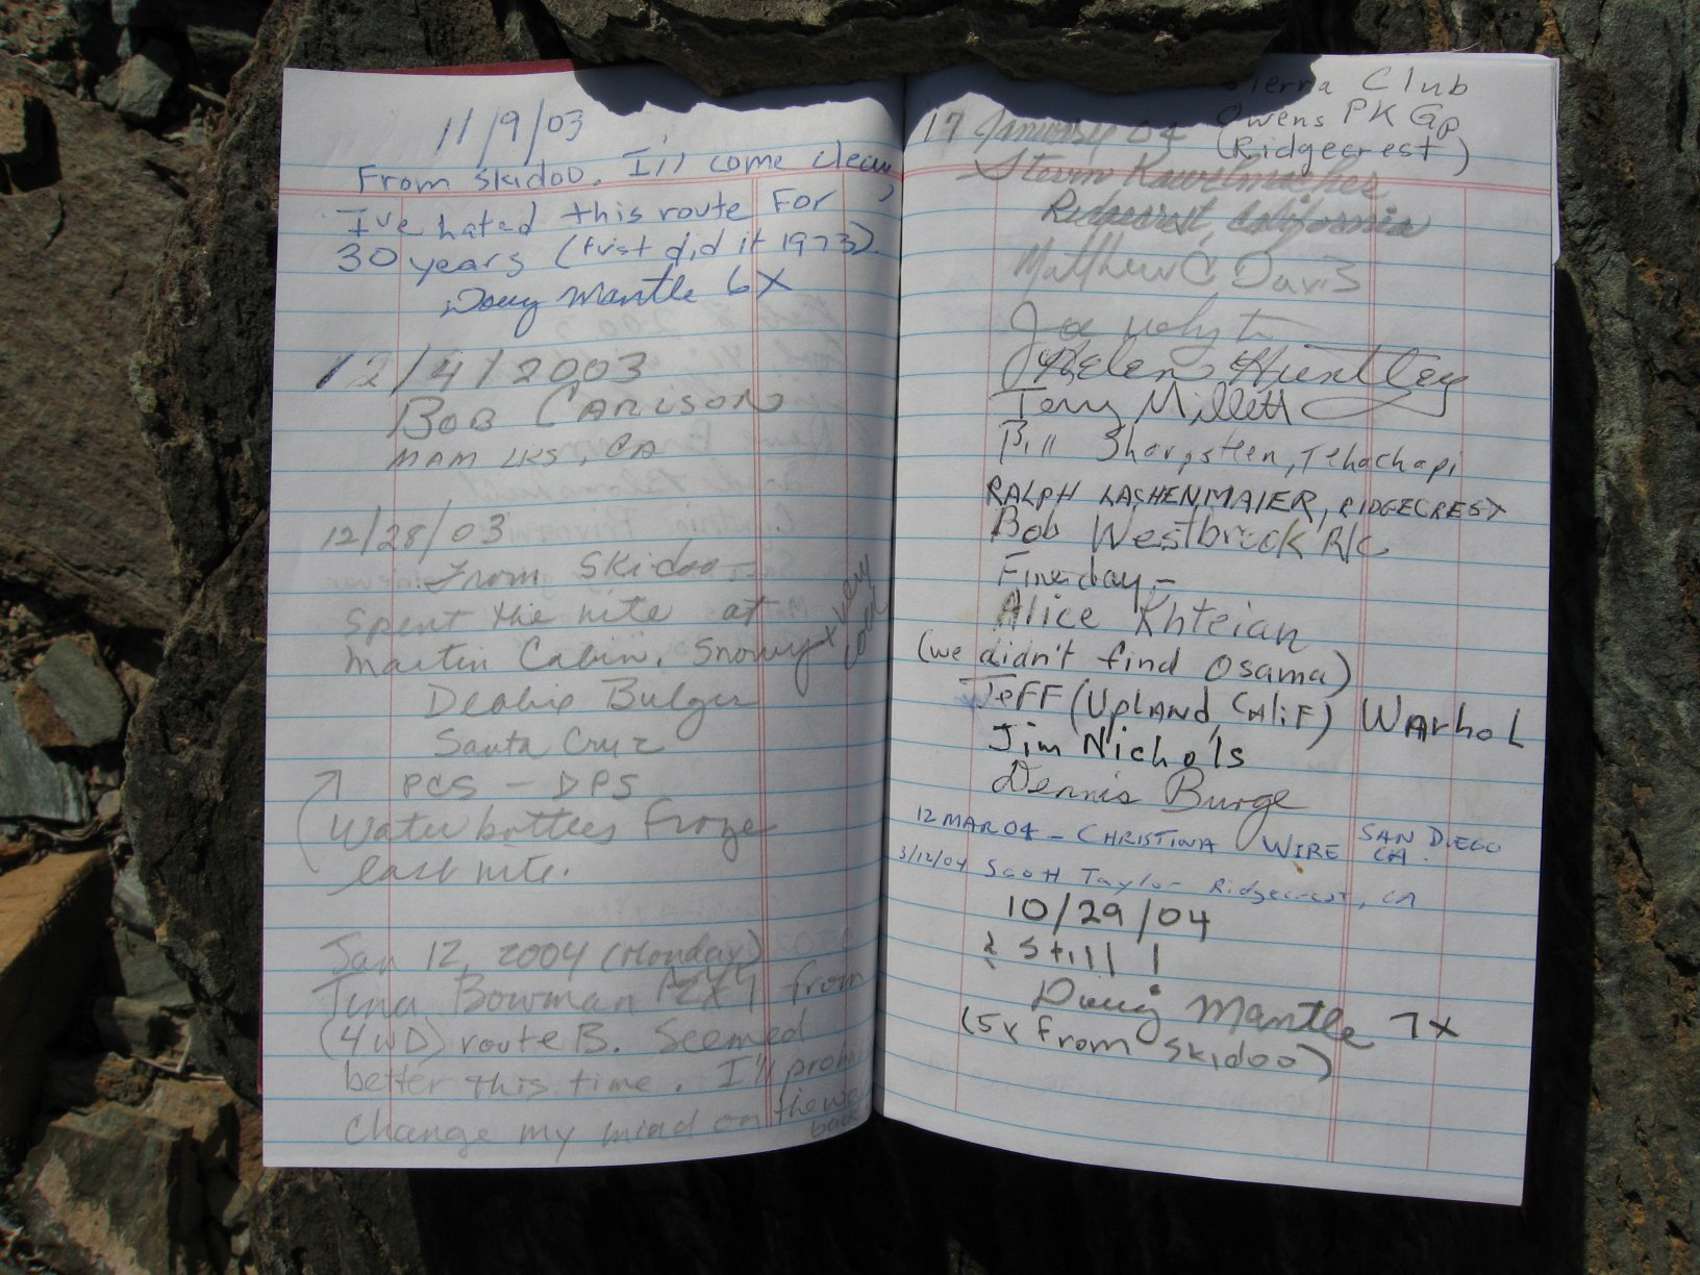 11/9/03
From Skidoo. I'll come clean,
I've hated this route For
30 years (first did it 1973).
Doug Mantle 6X
12/4/2003
BOB CARLSON
MAM LKS, CA
12/28/03
From Skidoo -
spent the nite at
Martin Cabin. Snowy & very
cool
Debbie Bulger
Santa Cruz
PCS - DPS
Water bottles froze
last nite.
Jan 12, 2004 (Monday)
Tina Bowman from
(4WD) route B. Seemed
better this time. I'll
change my mind on the way
back
Sierra Club
Owens PK Gp
(Ridgecrest)
17 January 04
Ridgecrest, California
Matthew C Davis
Joe
Helen Huntley
Terry Millett
Bill Sharpsteen, Tehachapi
RALPH LASHENMAIER, RIDGECREST
Bob Westbrook R/C
Fine day -
Alice Khteian
(we didn't find Osama)
JeFF (UpLAND, CALiF) WArhoL
Jim Nichols
Dennis Burge
12 MAR 04 - CHRISTINA WIRE SAN DIEGO
CA.
3/12/04 Scott Taylor - Ridgecrest, CA
10/29/04
& still 1
Doug Mantle 7X
(5x from Skidoo)